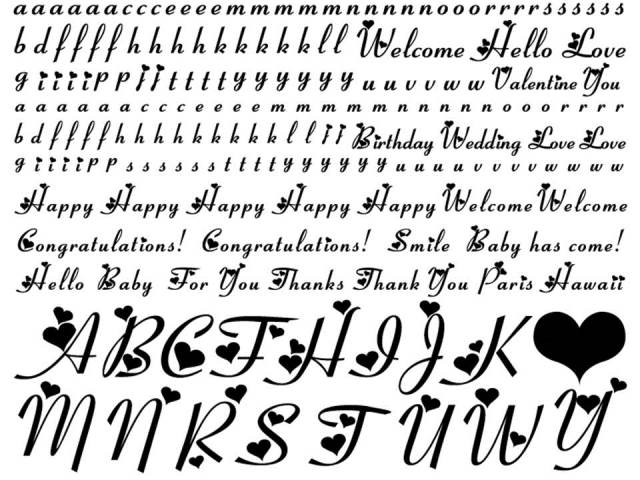 aaaaaaccceeeemmmmmnnnnnooorrrrssssss
bdffffhhhhkkkkkll Welcome Hello Love
giiiippjjttttyyyyyyyuuvvww Valentine You
aaaaaaaccceeeeemmmmmnnnnnnooorrrr
bdffffhhhhkkkkkllii Birthday Wedding Love Love
giiiippssssssttttyyyyyyyuuuuvvvvwwww
Happy Happy Happy Happy Happy Welcome Welcome
Congratulations! Congratulations! Smile Baby has come!
Hello Baby For You Thanks Thank You Paris Hawaii
ABCFHIJK
MNRSTUWY